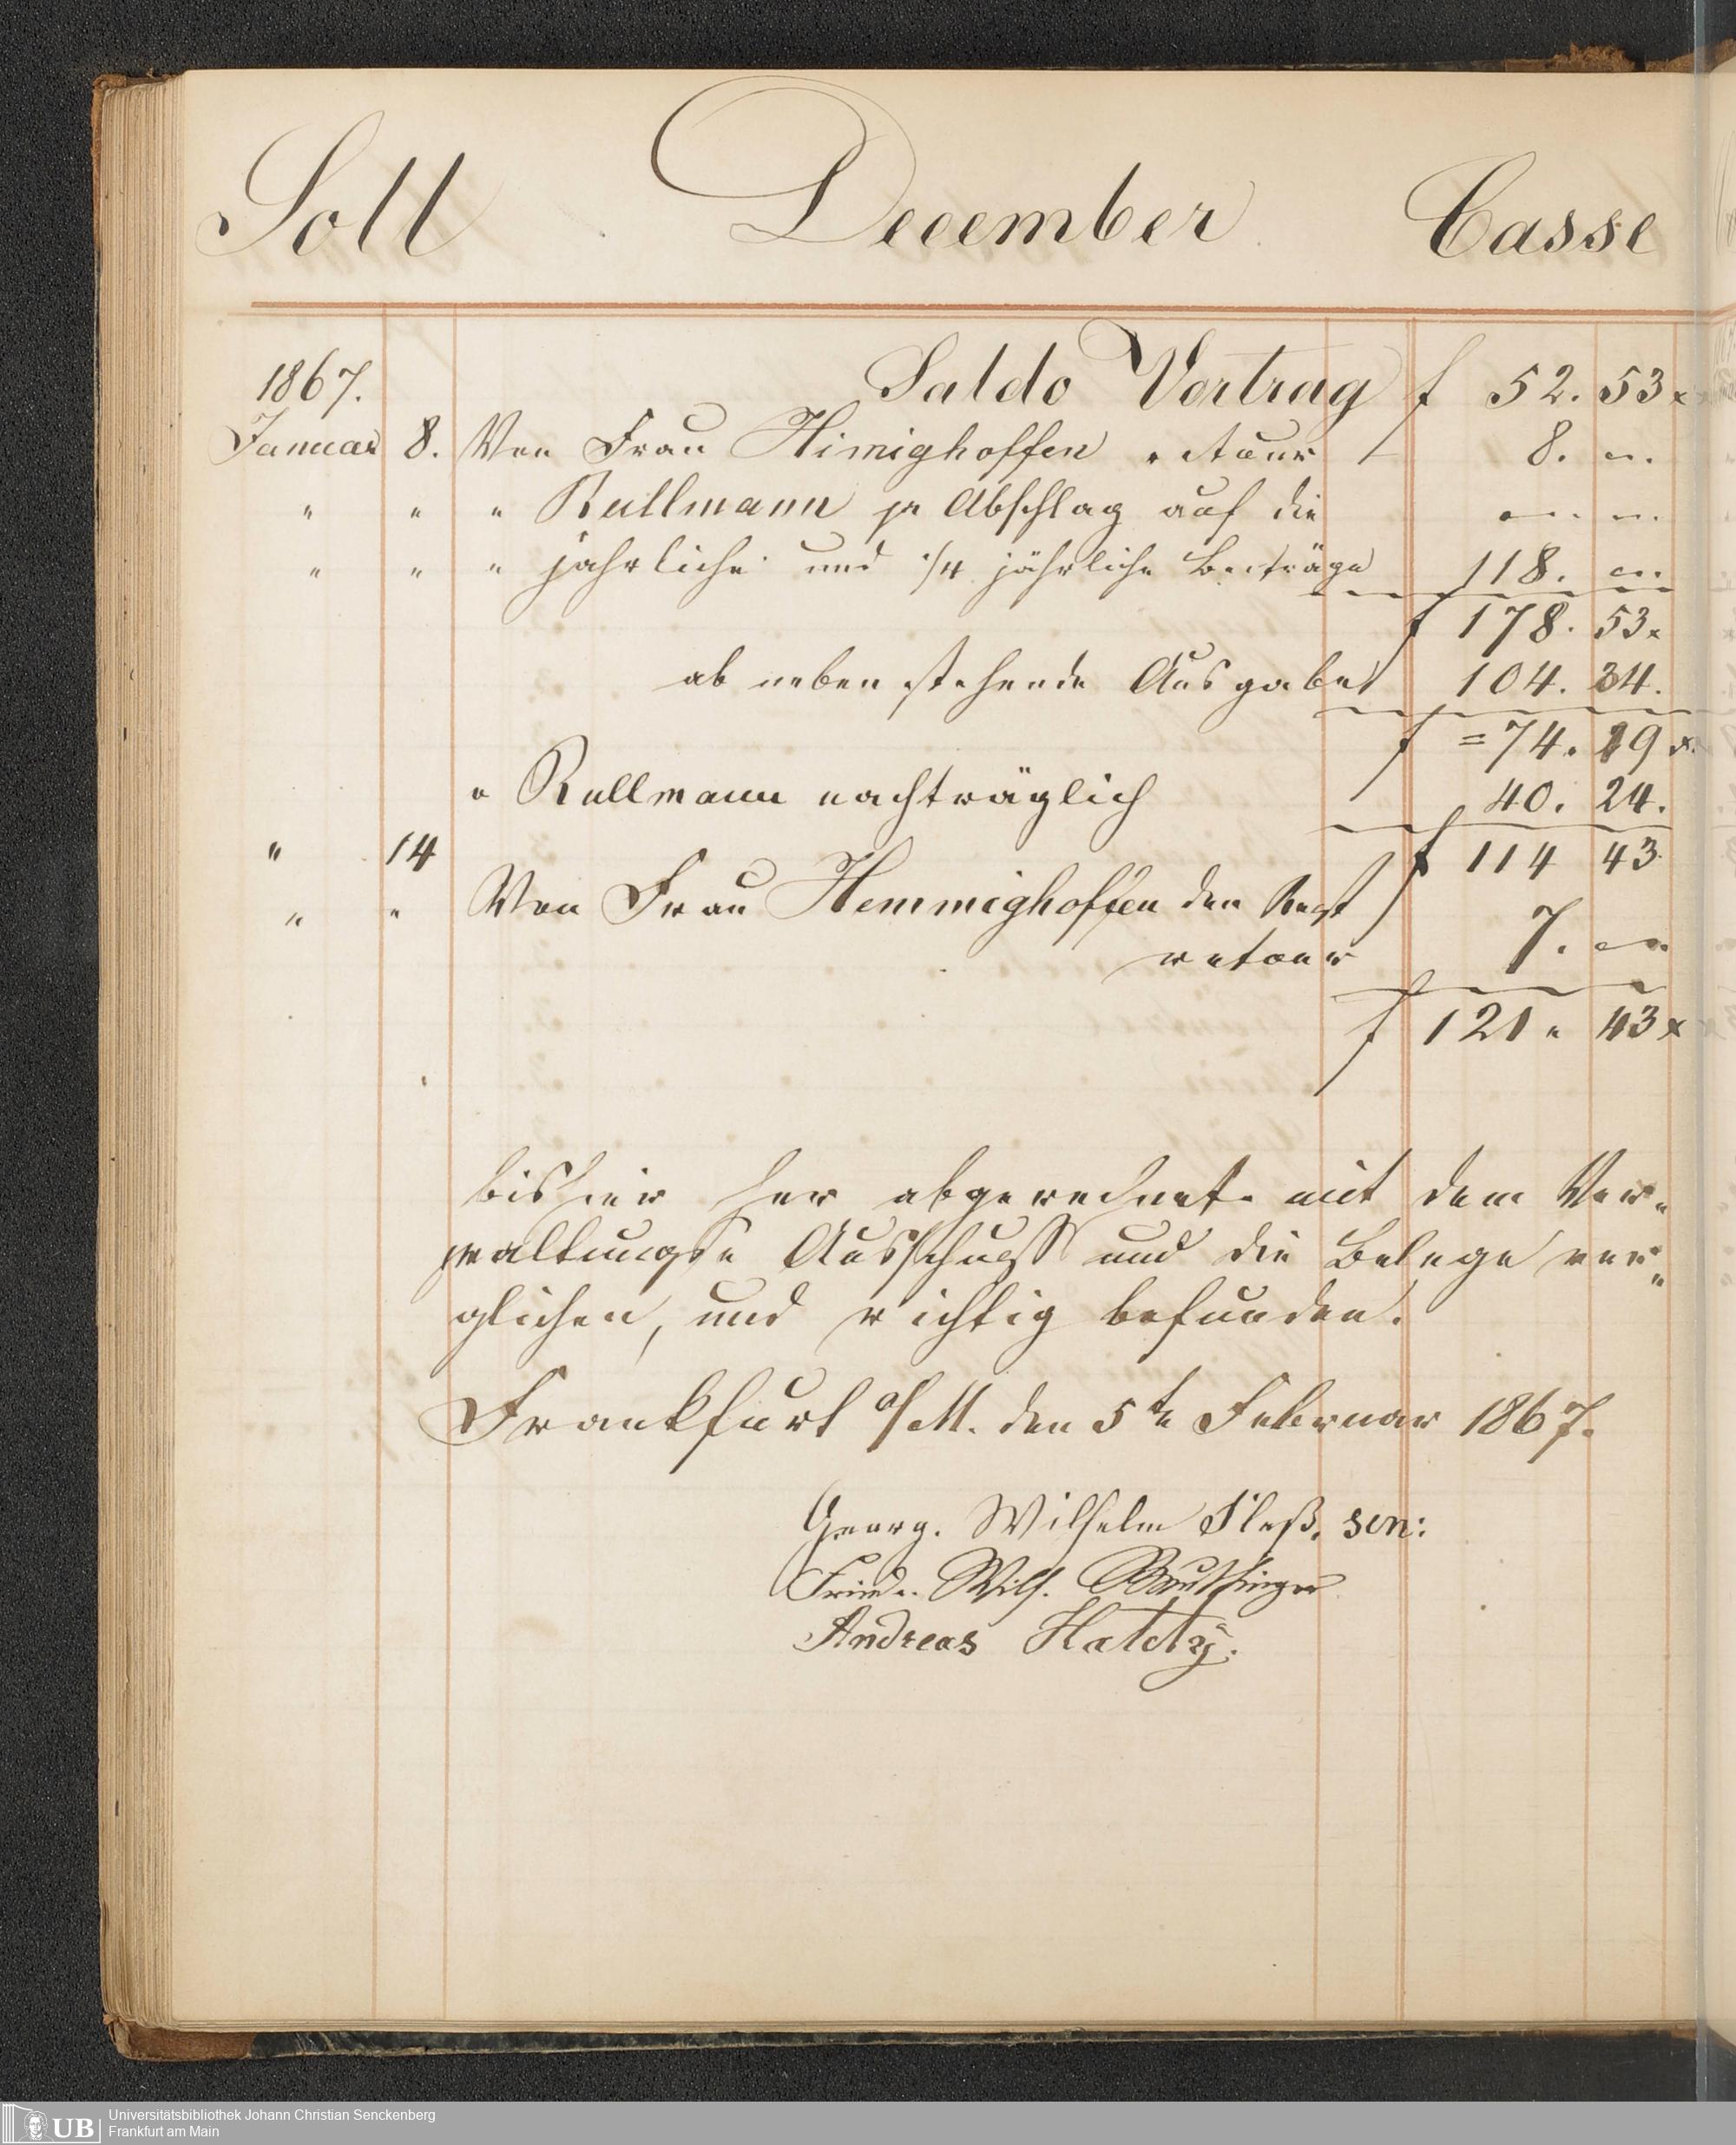 Soll December Casse
Saldo Vortrag f 52. 53x
1867.
Januar 8. Von Frau Himighoffen retour 8. „.
" " " Rullmann pr Abschlag auf die „. „.
" " " jährliche und 1/4 jährliche Beiträge 118. „.
f 178. 53x
ab neben stehende Ausgabe 104. 34.
f =74. 19x.
" Rullmann nachträglich 40. 24.
" 14 f 114 43
" " Von Frau Hemmighoffen den Rest
retour 7. „.
f 121 " 43x
bis hier her abgerechnet mit dem Ver-
waltungs- Ausschuss und die Belege ver-
glichen, und richtig befunden.
Frankfurt a/M. den 5te Februar 1867.
Georg. Wilhelm sen:
Fried. Wilh.
Andreas
UB
Universitätsbibliothek Johann Christian Senckenberg
Frankfurt am Main